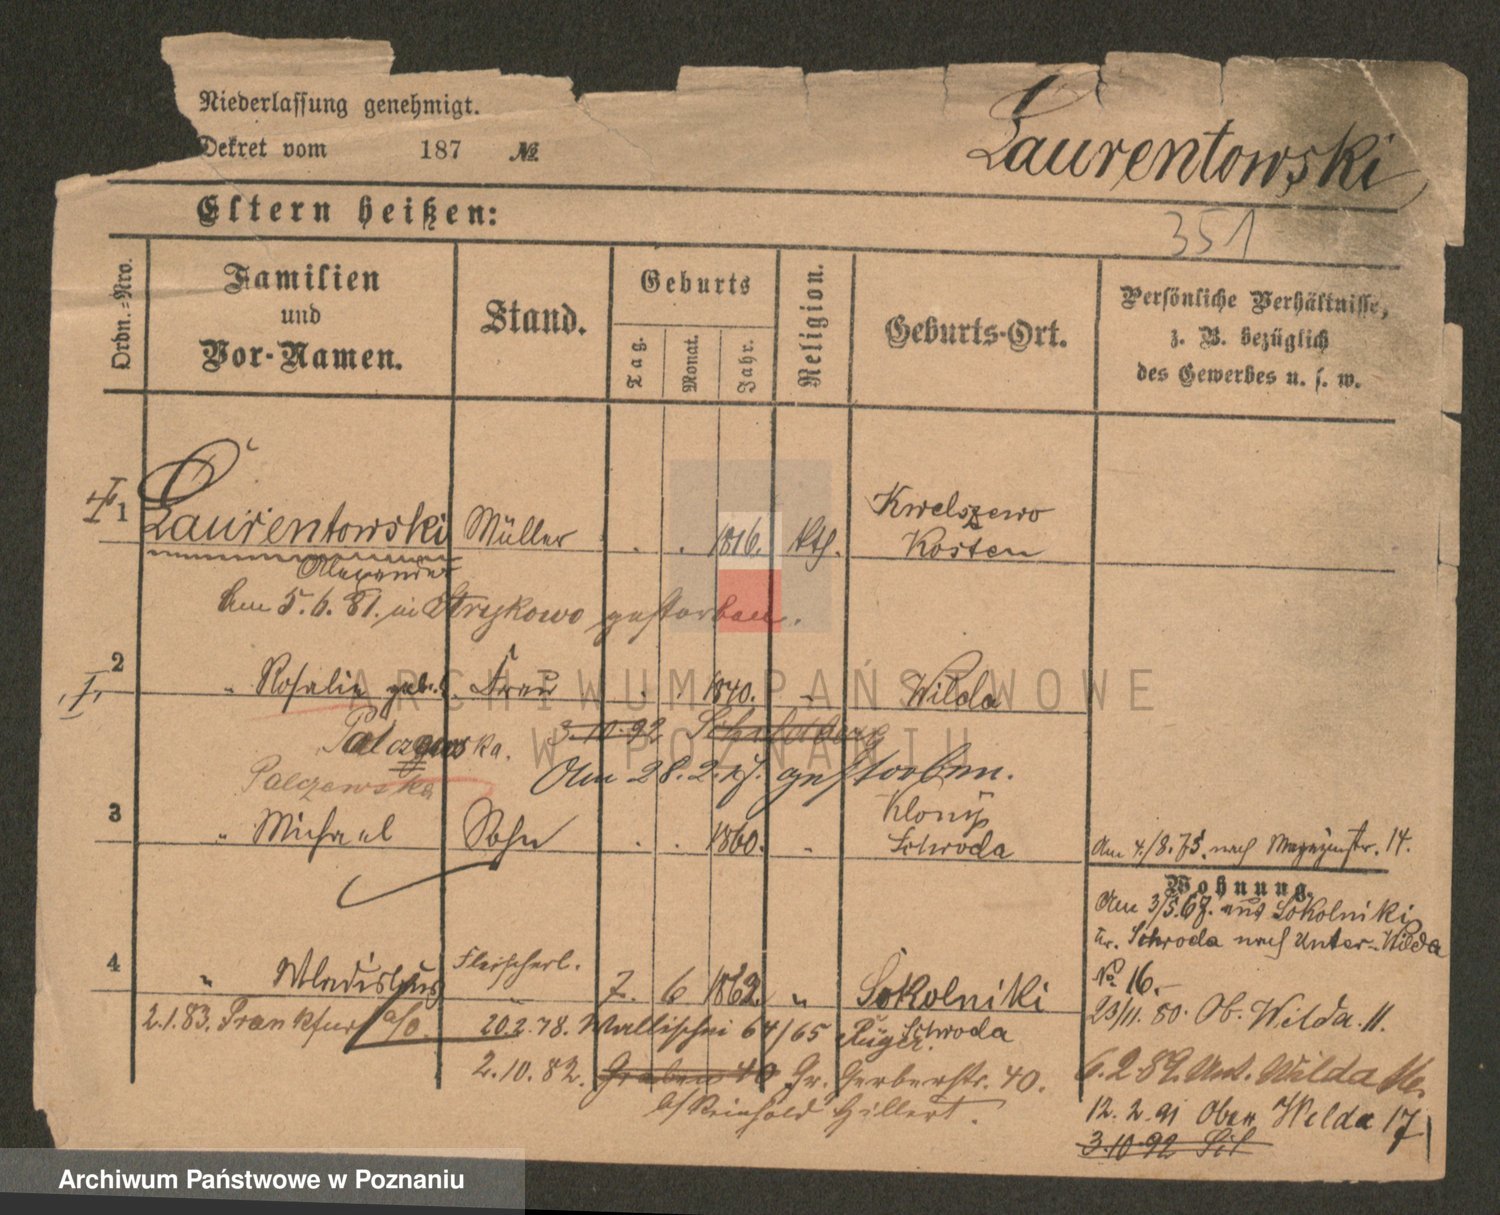 Niederlassung genehmigt.
Dekret vom 187 №
Laurentowski
351
Eltern heißen:
Ordn.-Nro.
Familien und Vor-Namen.
Stand.
Geburts
Tag.
Monat.
Jahr.
Religion.
Geburts-Ort.
Persönliche Verhältnisse,
z. B. bezüglich
des Gewerbes u. s. w.
I 1 Laurentowski Müller . . 1816. Kth. Kwelszewo
Kosten
Alexander
Am 5.6.81. in Strykowo gestorben.
2
I. " Rosalie geb. Frau . . 1840. " Wilda
Palczewska. 3.10.92 Schildberg
Am 28.2.17. gestorben.
Palczewska
3 " Michael Sohn . . 1860. " Klony
Schroda
Am 4./8.75. nach Magazinstr. 14.
Wohnung.
Am 3/5.67. aus Sokolniki
Kr. Schroda nach Unter-Wilda
№ 16.
4 " Wladislaus Fleischerl. 7. 6 1862. " Sokolniki
Schroda
2.1.83. Frankfurt a/O. 20.2.78. Wallischei 64/65
23/11.80. Ob. Wilda. 11.
2.10.82. Graben 40 Gr. Gerberstr. 40.
b/ Reinhold Hillert.
6.2.89. Unt. Wilda
12.2.91 Ober Wilda 17
3.10.92 Sch
ARCHIWUM PAŃSTWOWE
W POZNANIU
Archiwum Państwowe w Poznaniu